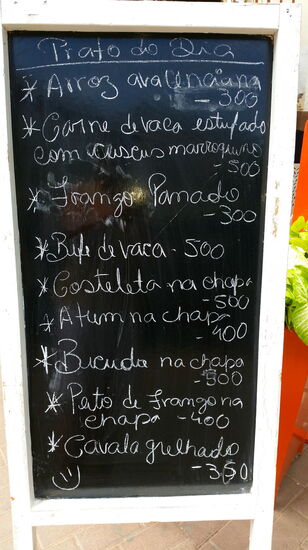 Prato do Dia
* Arroz avalenciana
- 300
* Carne de vaca estufado
com couscus marroquino
- 500
* Frango Panado
- 300
* Bife de vaca - 500
* Costeleta na chapa
- 500
* Atum na chapa
- 400
* Bicuda na chapa
- 500
* Pato de frango na
chapa - 400
* Cavala grelhado
- 350